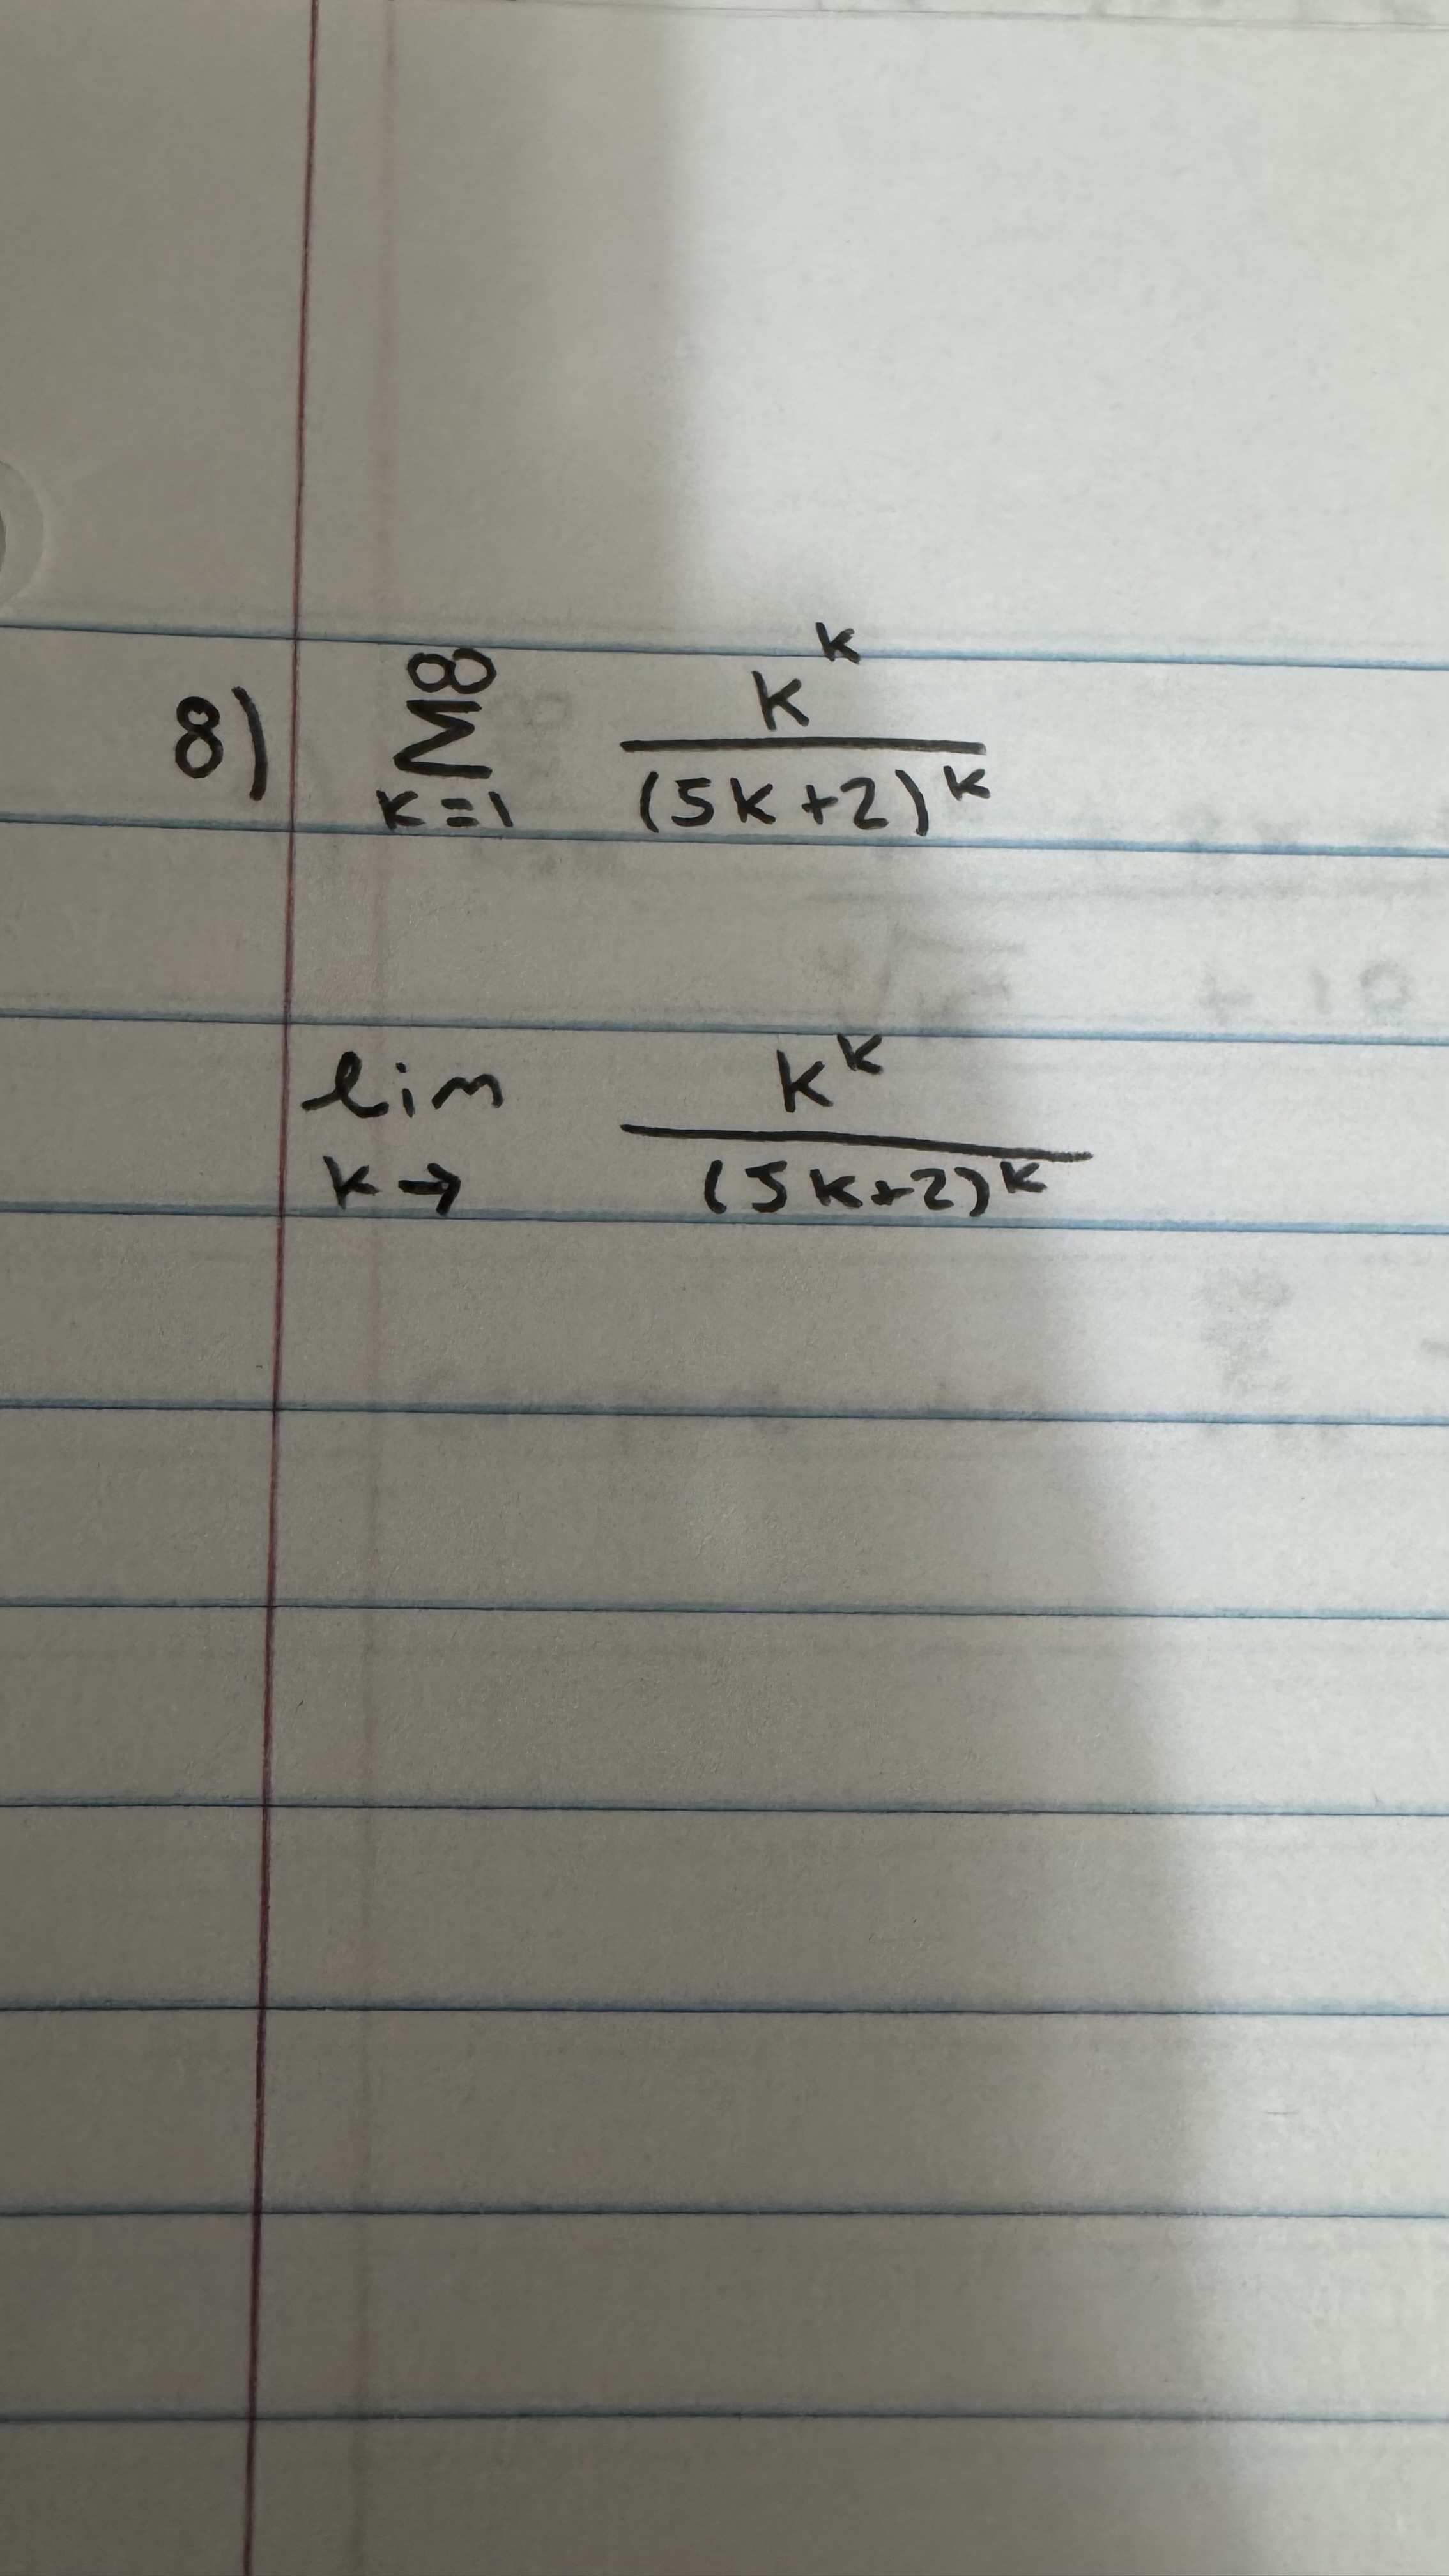 8) ∞ ∑ K=1 K^K / (5K+2)^K
lim K→ K^K / (5K+2)^K